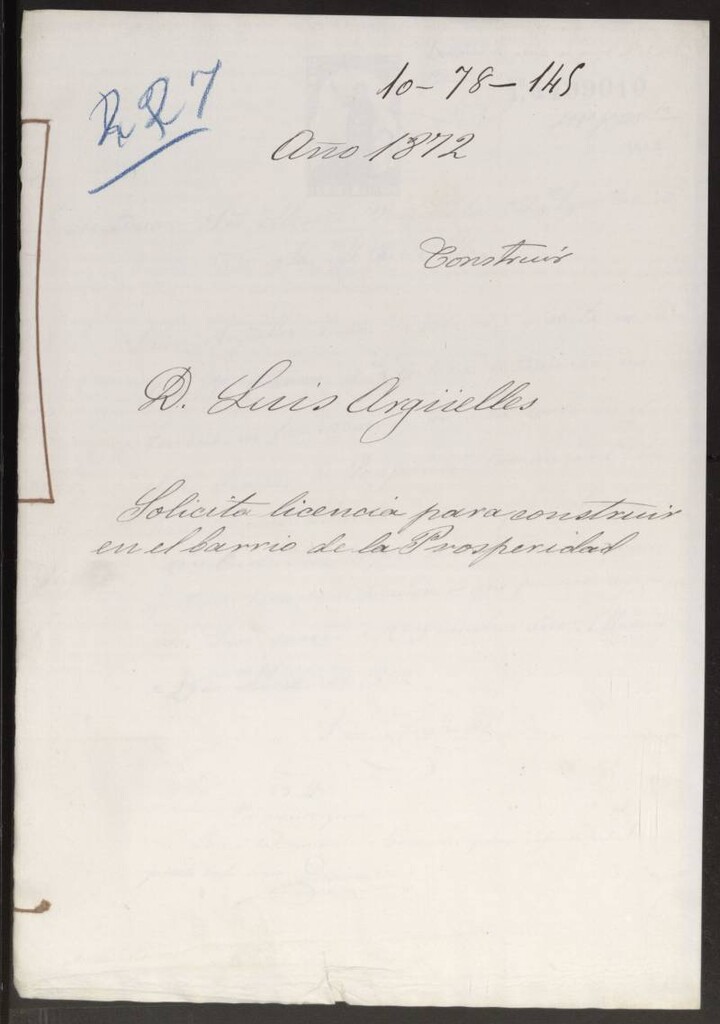 10-78-145
RR7
Año 1872
Construir
D. Luis Argüelles
Solicita licencia para construir
en el barrio de la Prosperidad